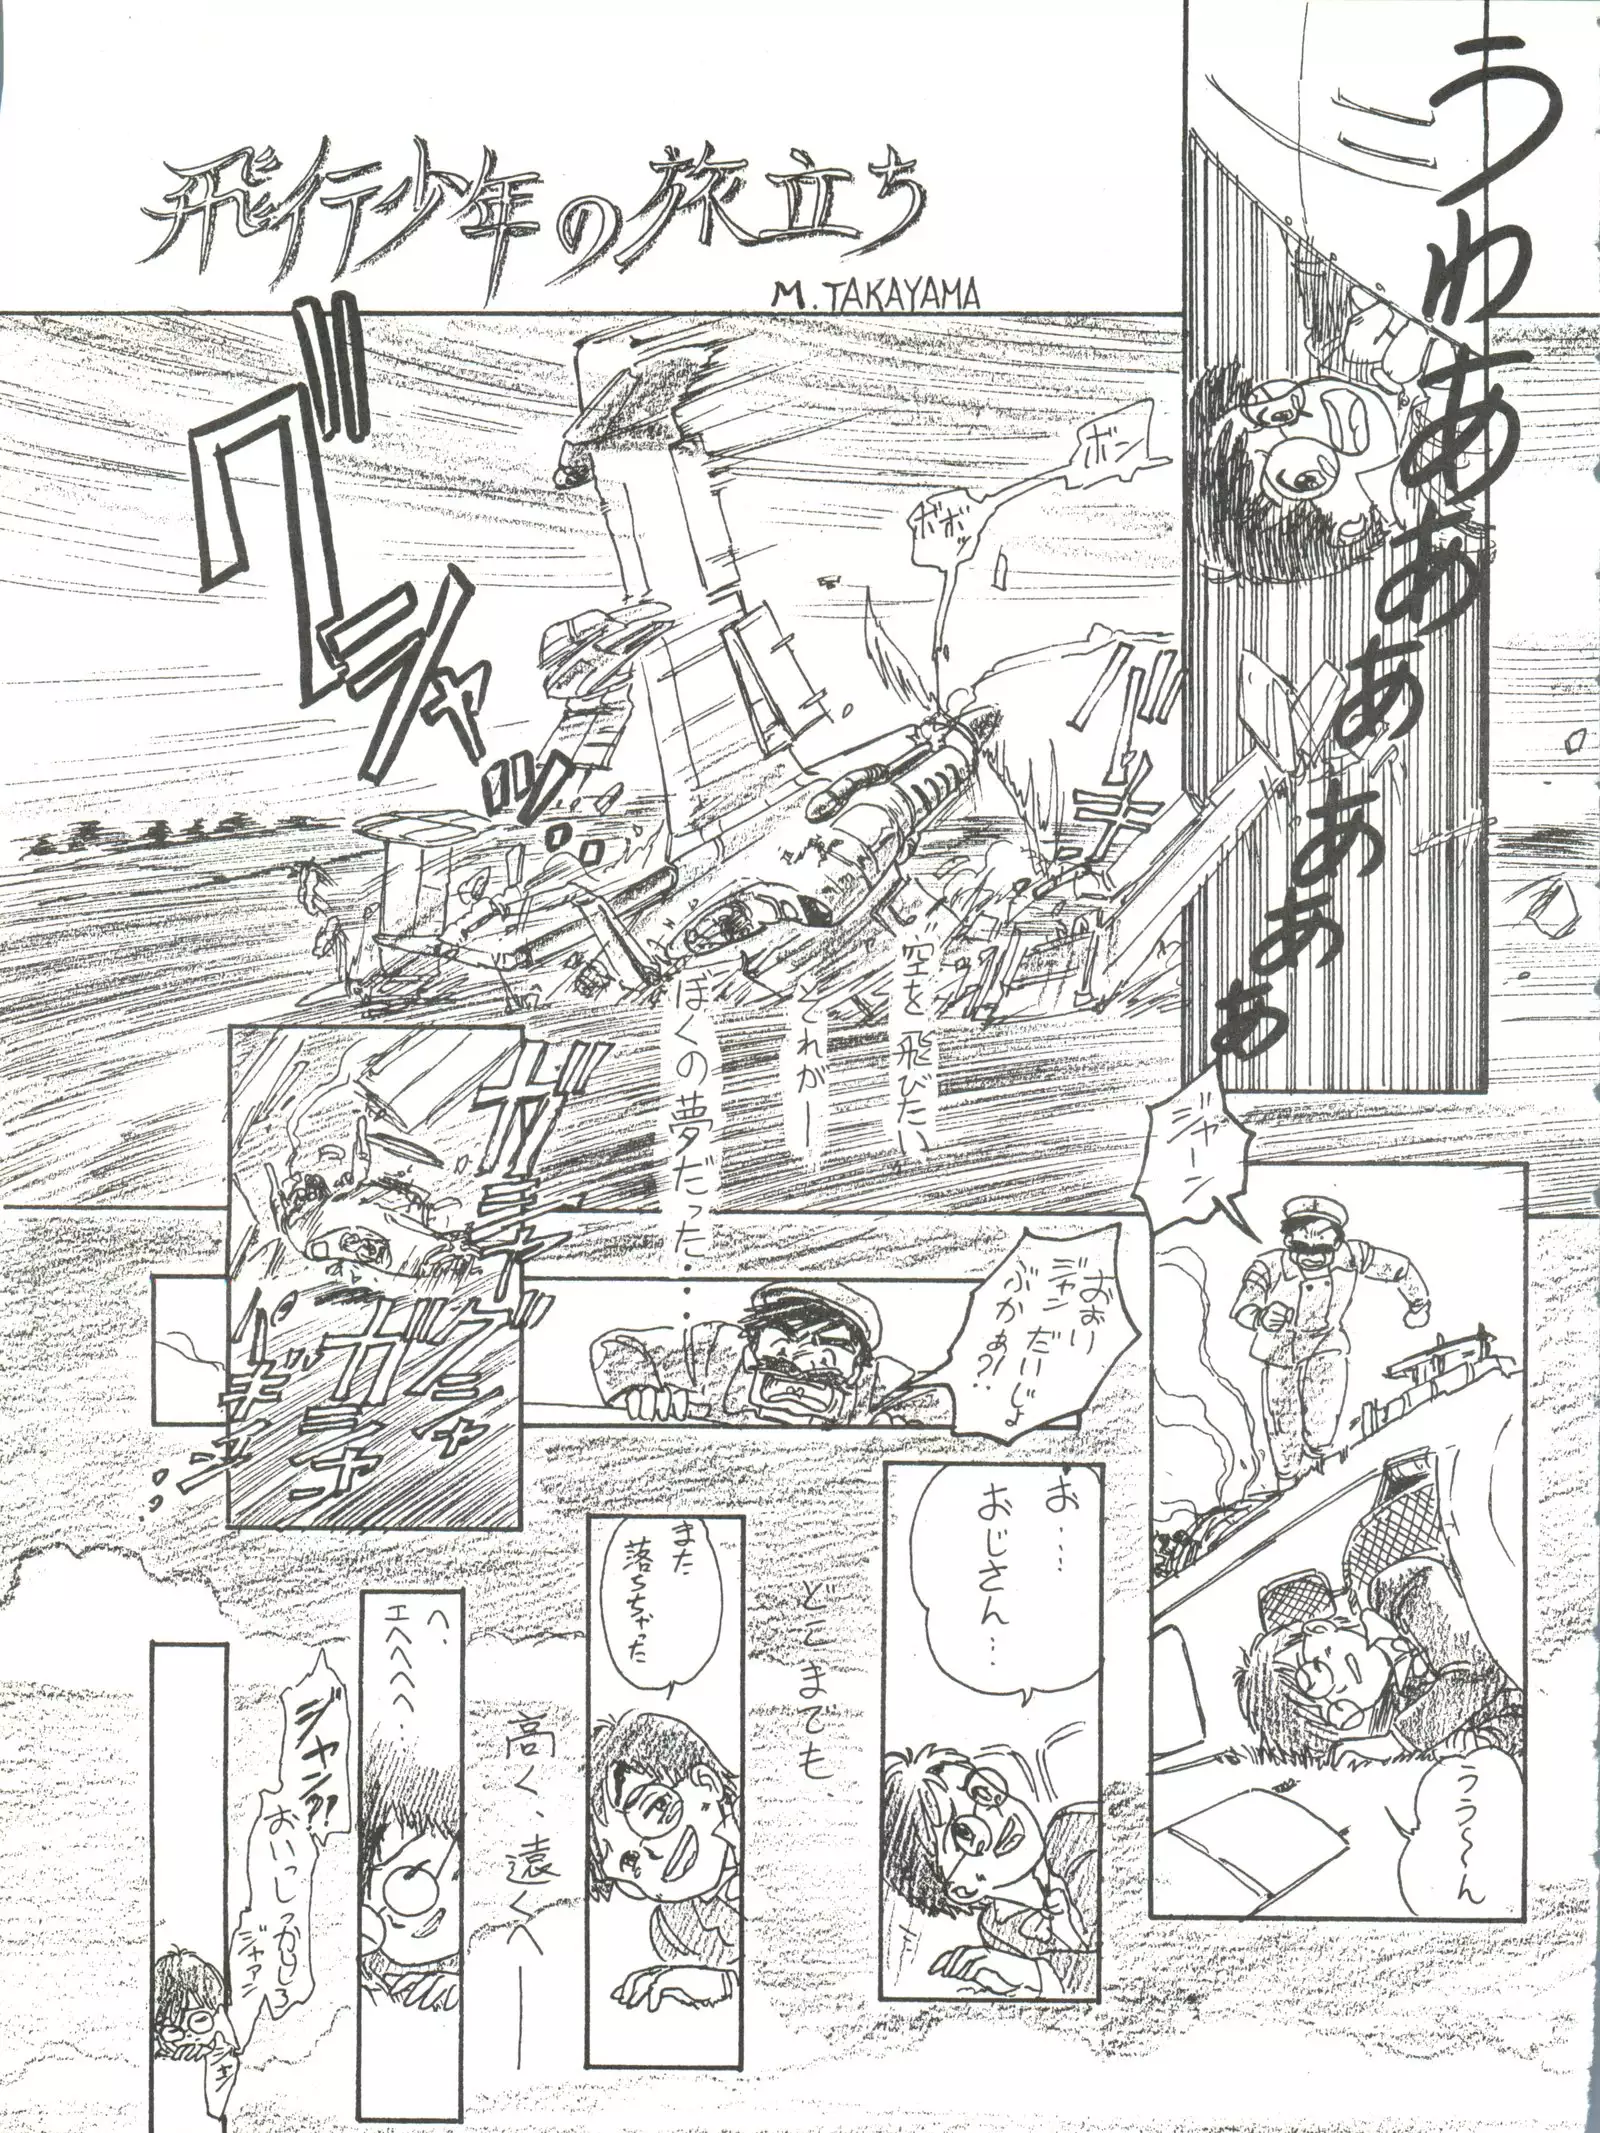 飛行少年の旅立ち
M. TAKAYAMA
うわあああああああぁ
ボン
ボボッ
グシャ
空を飛びたい
それがー
ぼくの夢だった……
ジャーン
おおい
ジャンだいじょ
ぶかぁ?!
ううーん
お……
おじさん…
どこまでも、
また
落っちゃった
高く、遠くへ――
へ、
エヘヘヘヘ、
ジャン?!
おいっしっかりしろ
ジャアン
ジャン